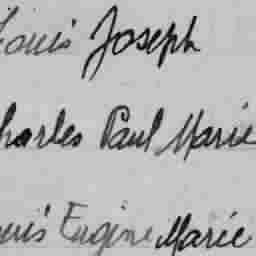 Louis Joseph
Charles Paul Marie
Louis Eugène Marie